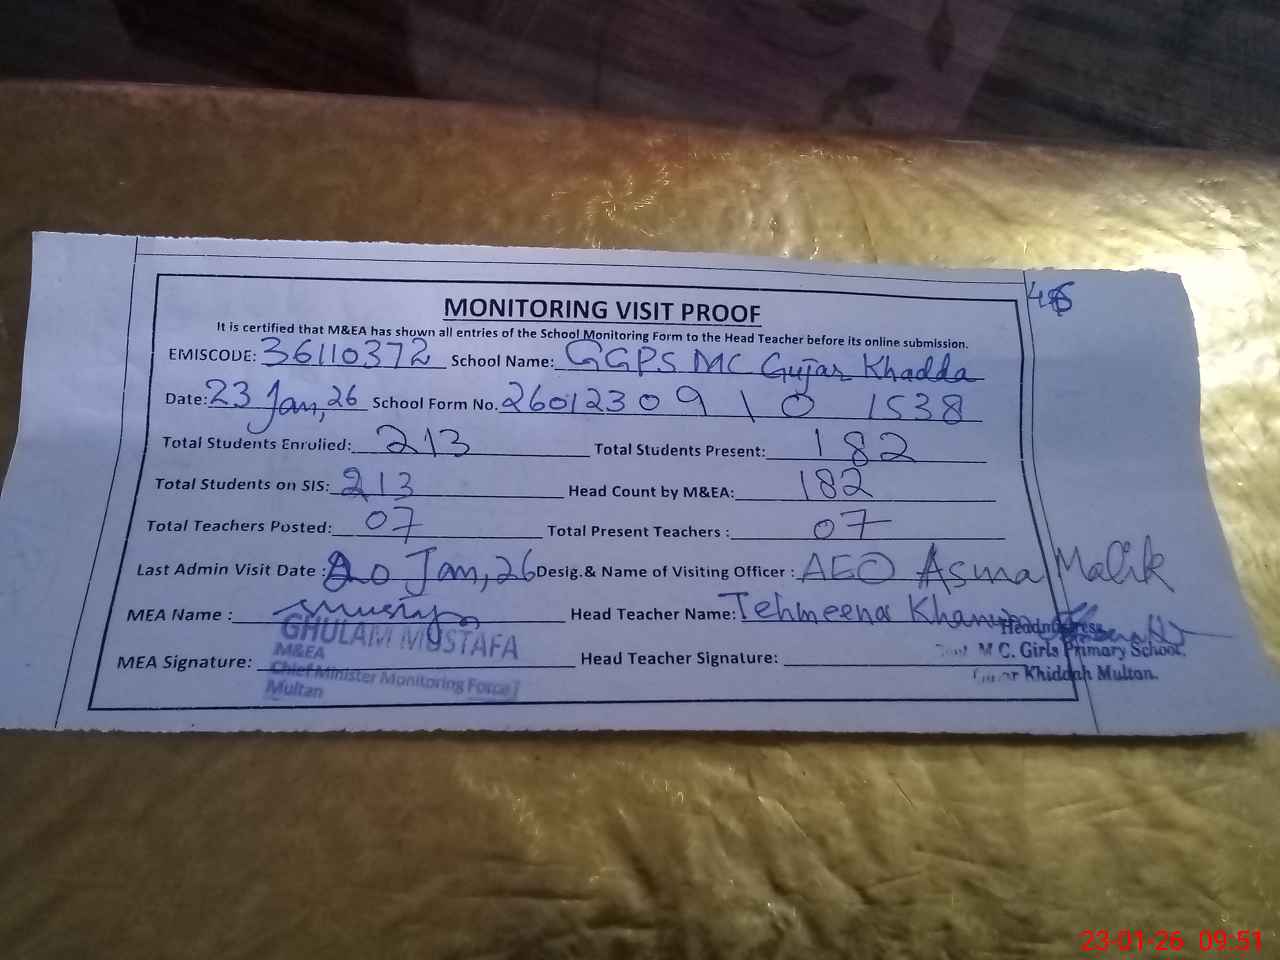 46
MONITORING VISIT PROOF
It is certified that M&EA has shown all entries of the School Monitoring Form to the Head Teacher before its online submission.
EMISCODE: 36110372 School Name: GGPS MC Gujar Khadda
Date: 23 Jan, 26 School Form No. 260123091 0 1538
Total Students Enrolled: 213 Total Students Present: 182
Total Students on SIS: 213 Head Count by M&EA: 182
Total Teachers Posted: 07 Total Present Teachers : 07
Last Admin Visit Date : 20 Jan, 26 Desig.& Name of Visiting Officer : AEO Asma Malik
MEA Name : Head Teacher Name: Tehmeena Khanum
GHULAM MUSTAFA
M&EA
Chief Minister Monitoring Force
Multan
MEA Signature: Head Teacher Signature:
Headmistress
Govt M C. Girls Primary School.
Gujar Khiddah Multan.
23-01-26 09:51